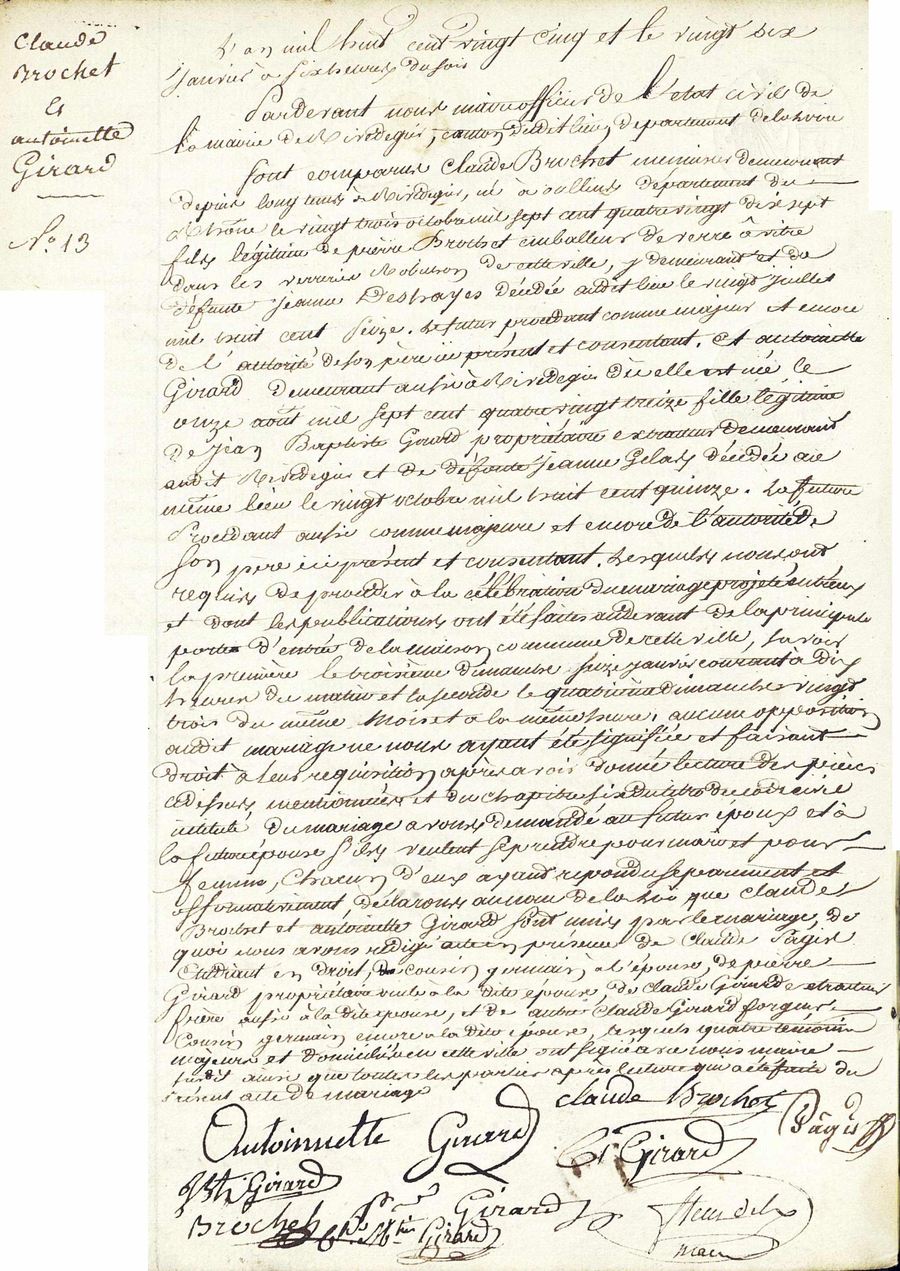 Claude
Brochet
Et
antoinette
Girard
No. 13
L'an mil huit cent vingt cinq et le vingt six
janvier à six heures du soir
Pardevant nous maire officier de l'état civil de
la mairie de Rivedegier, canton dudit lieu, département de la Loire
sont comparus Claude Brochet menuisier demeurant
depuis long tems à Rivedegier, né à Sulleur département du
Rhône le vingt trois octobre mil sept cent quatre vingt dix sept
fils légitime de pierre Brochet emballeur de verre à vitre
dans les verreries Robichon de cette ville, y demeurant et de
défunte Jeanne Deshayes décédée audit lieu le vingt juillet
mil huit cent seize. Le futur procédant comme majeur et encore
de l'autorité de son père ici présent et consentant. Et antoinette
Girard demeurant aussi à Rivedegier où elle est née le
onze août mil sept cent quatre vingt treize fille légitime
de Jean Baptiste Girard propriétaire extracteur demeurant
audit Rivedegier et de défunte Jeanne Gelas décédée au
même lieu le vingt octobre mil huit cent quinze. La future
Procédant aussi comme majeure et encore de l'autorité de
son père ici présent et consentant. Lesquels nous ont
requis de procéder à la célébration du mariage projeté entr'eux
et dont les publications ont été faites audevant de la principale
porte d'entrée de la maison commune de cette ville, savoir
la première le troisième dimanche seize janvier courant à dix
heures du matin et la seconde le quatrième dimanche vingt
trois du même mois et à la même heure, aucune opposition
audit mariage ne nous ayant été signifiée et faisant
droit à leur requisition, après avoir donné lecture des pièces
cidessus mentionnées et du chapitre six du titre du code civil
intitulé du mariage avons demandé au futur époux et à
la future épouse s'ils veulent se prendre pour mari et pour
femme, chacun d'eux ayant répondu séparément et
affirmativement déclarons au nom de la Loi que Claude
Brochet et antoinette Girard sont unis par le mariage, de
quoi nous avons rédigé acte en présence de Claude Pagis
Etudiant en droit, cousin germain à l'épouse, de pierre
Girard propriétaire oncle à la dite épouse de Claude Girard extracteur
frère aussi à la dite épouse, et de autre Claude Girard forgeur
Cousin germain encore à la dite épouse, lesquels quatre témoins
majeurs et domiciliés en cette ville ont signé avec nous maire
susdit ainsi que toutes les parties après lecture qui a été faite du
Présent acte de mariage
Claude Brochet Pagis
Antoinette Girard Cl Girard
Bte Girard
Brochet Girard
Girard
maire